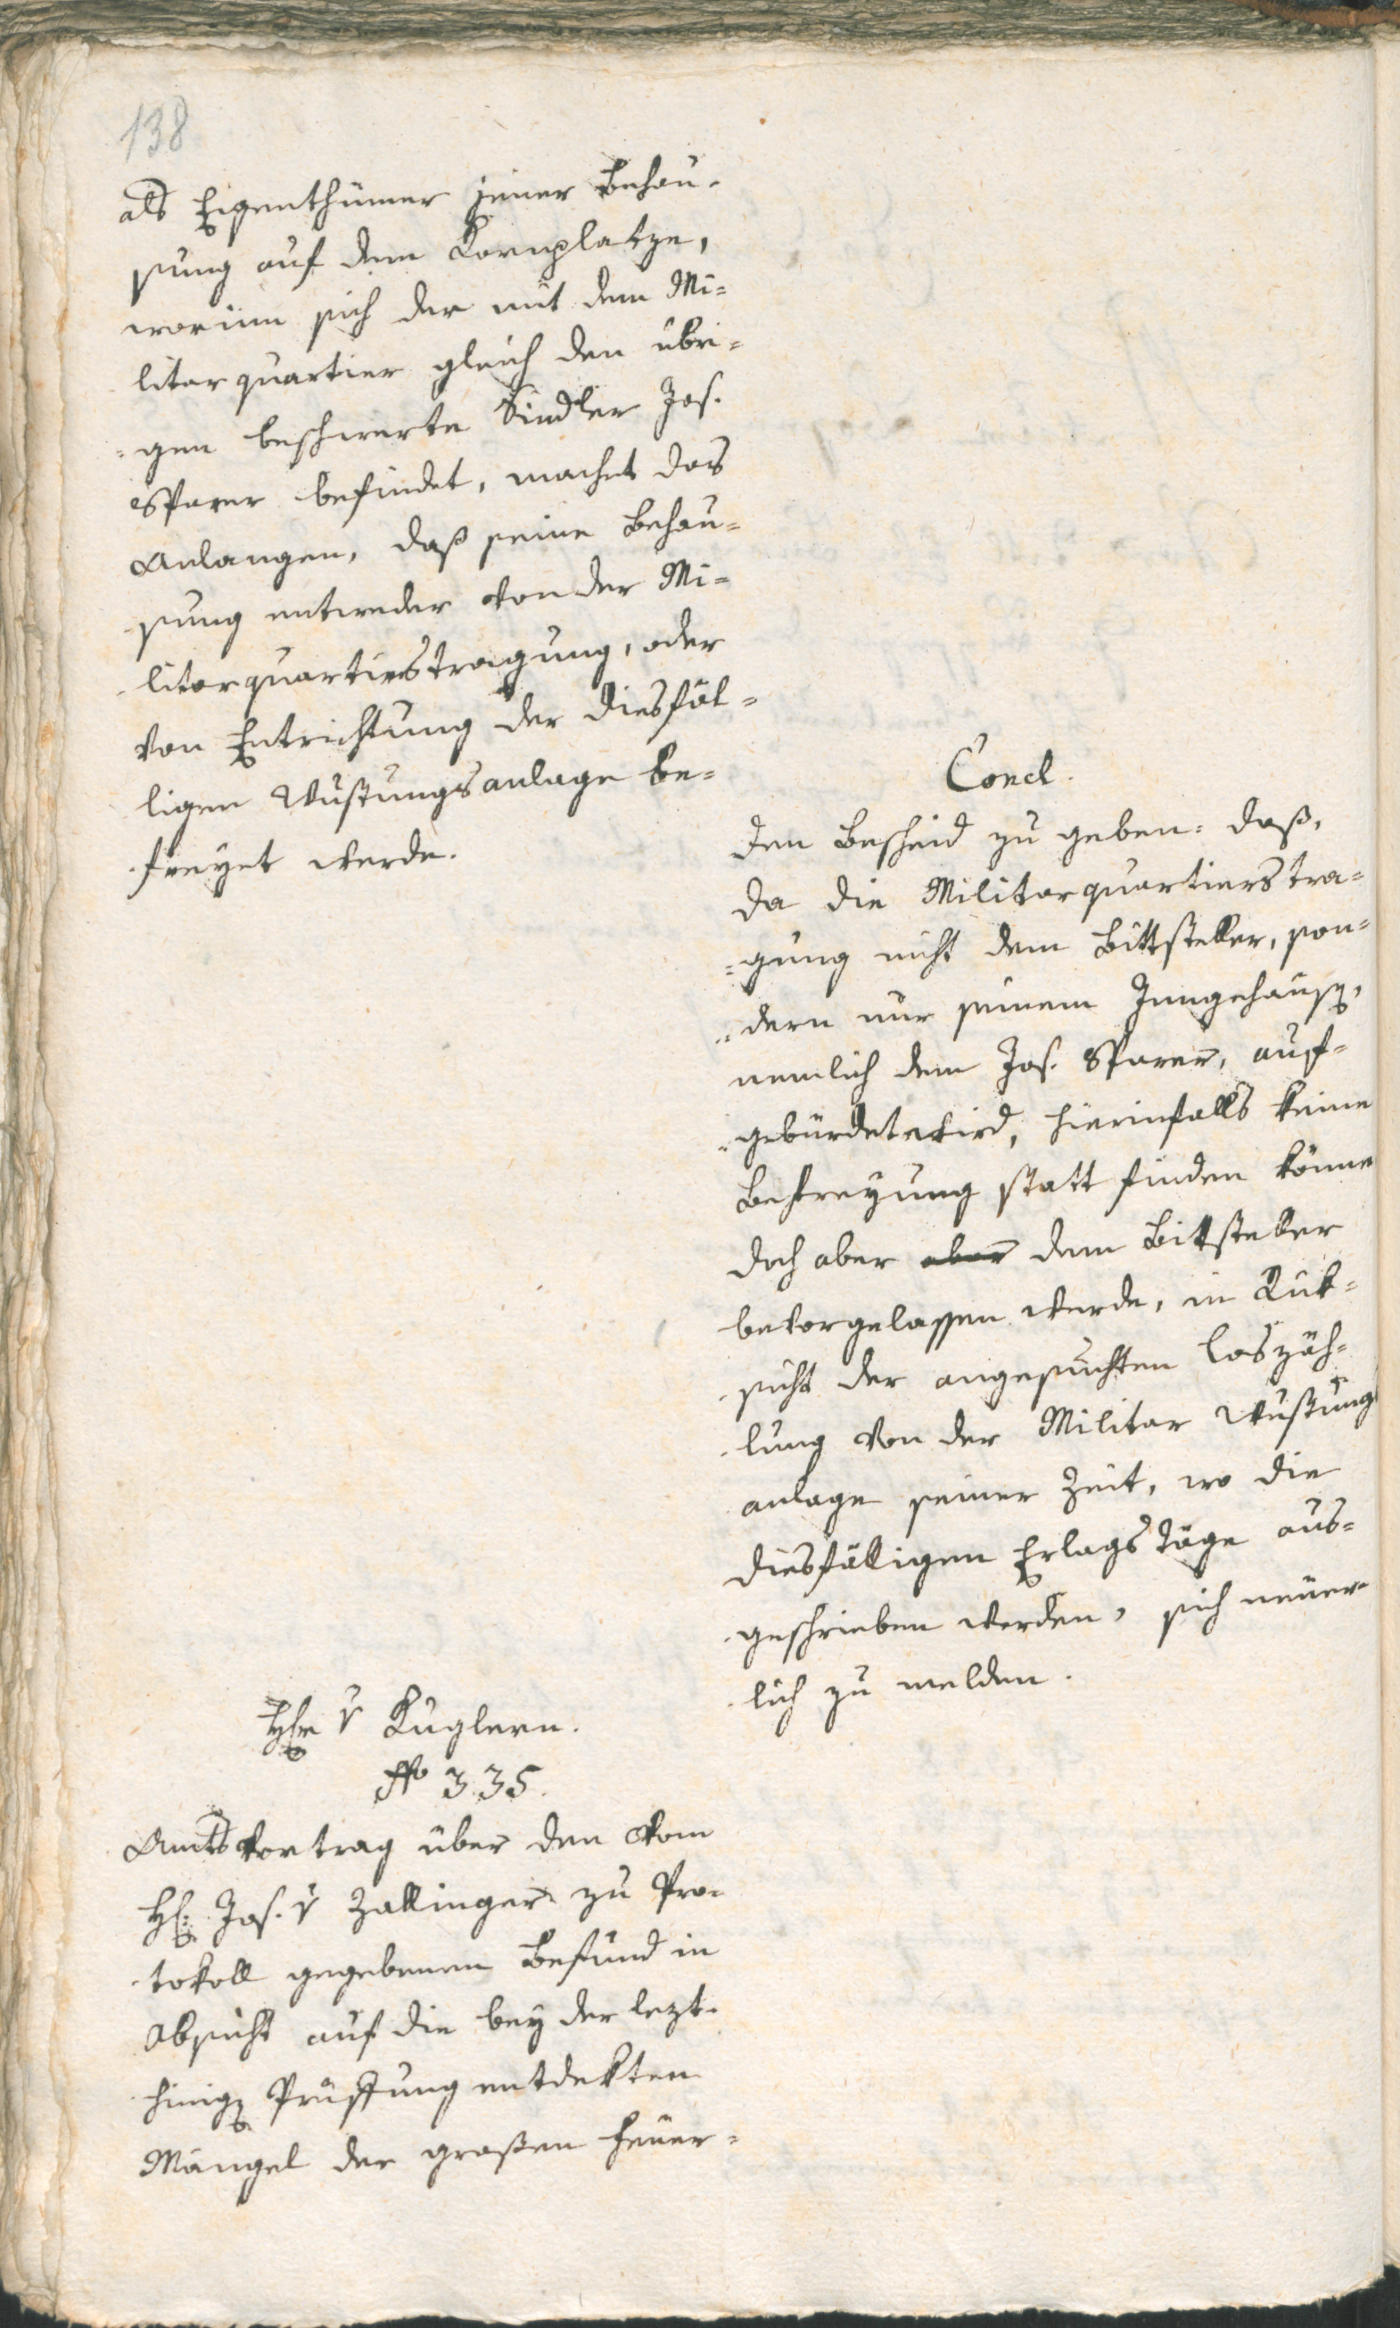 138
als Eigenthümer jener Behau-
sung auf dem Kornplatze,
worinn sich der mit dem Mi=
litarquartier gleich den übri=
=gen beschwerte Sindler Jos.
Sparer befindet, machet das
Anlangen, daß seine Behau=
sung entweder von der Mi=
litarquartierstragung, oder
von Entrichtung der diesfäl=
ligen Wustungsanlage be=
freyet werde.
Concl.
Den Bescheid zu geben: daß,
da die Militarquartierstra=
=gung nicht dem Bittsteller, son=
=dern nur seinem Inngehäusen,
nemlich dem Jos. Sparer, auf=
=gebürdet wird, hierinfalls keine
Befreyung statt finden könne
doch aber aber dem Bittsteller
bevorgelassen werde, in Rük=
sicht der angesuchten Loszäh=
lung von der Militar Wustungs
anlage seiner Zeit, wo die
diesfälligen Erlagstäge aus=
geschrieben werden, sich neuer
lich zu melden.
Hrn v Kuglern.
No 335.
Amtsvortrag über den vom
H: Jos. v Zallinger zu Pro-
tokoll gegebenen Befund in
Absicht auf die bey der lezt-
hinigen Prüffung entdekten
Mängel der großen Feuer=